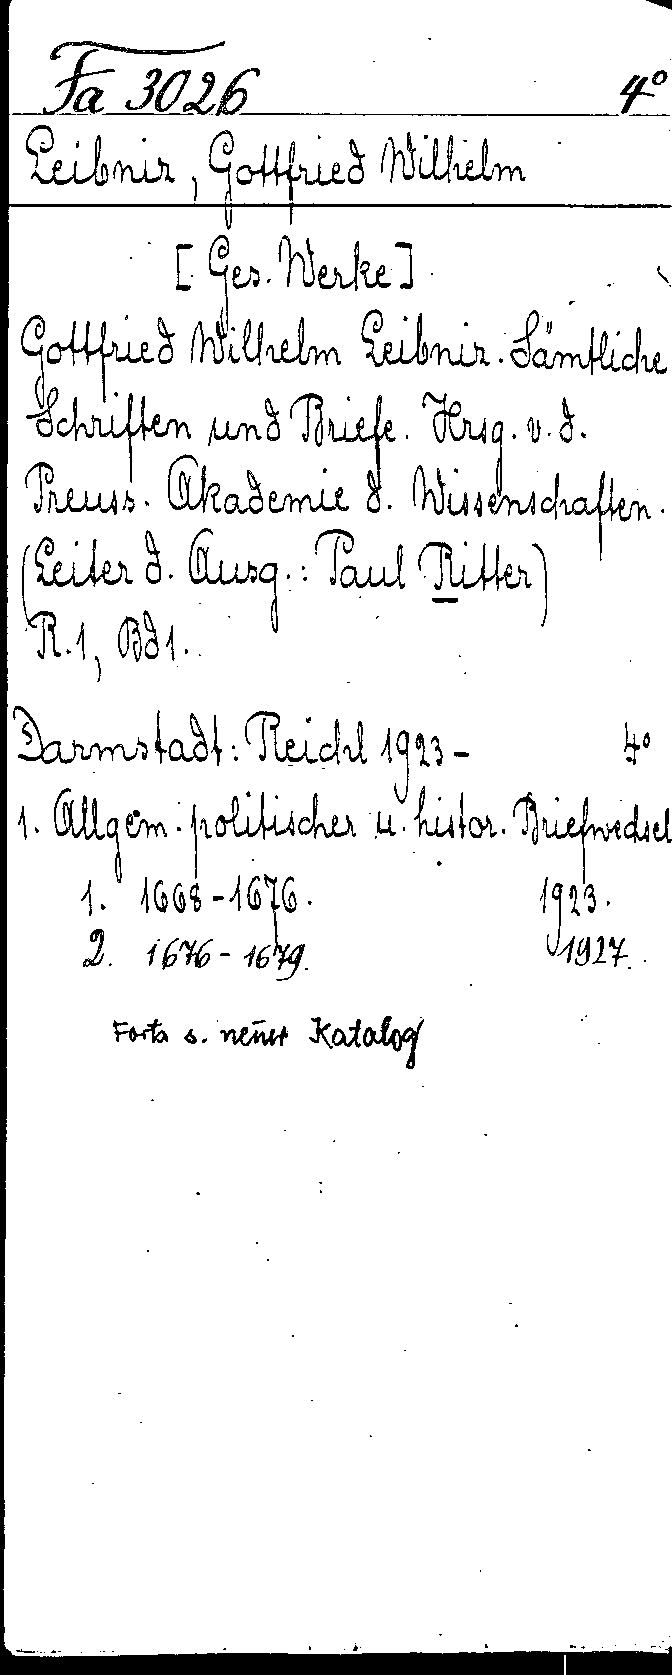 Fa 3026 4°
Leibniz, Gottfried Wilhelm
[Ges. Werke]
Gottfried Wilhelm Leibniz. Sämtliche
Schriften und Briefe. Hrsg. v. d.
Preuss. Akademie d. Wissenschaften.
(Leiter d. Ausg.: Paul Ritter)
R.1, Bd1.
Darmstadt: Reichl 1923- 4°
1. Allgem. politischer u. histor. Briefwechsel
1. 1668-1676. 1923.
2. 1676-1679. 1927.
Forts s. neuer Katalog